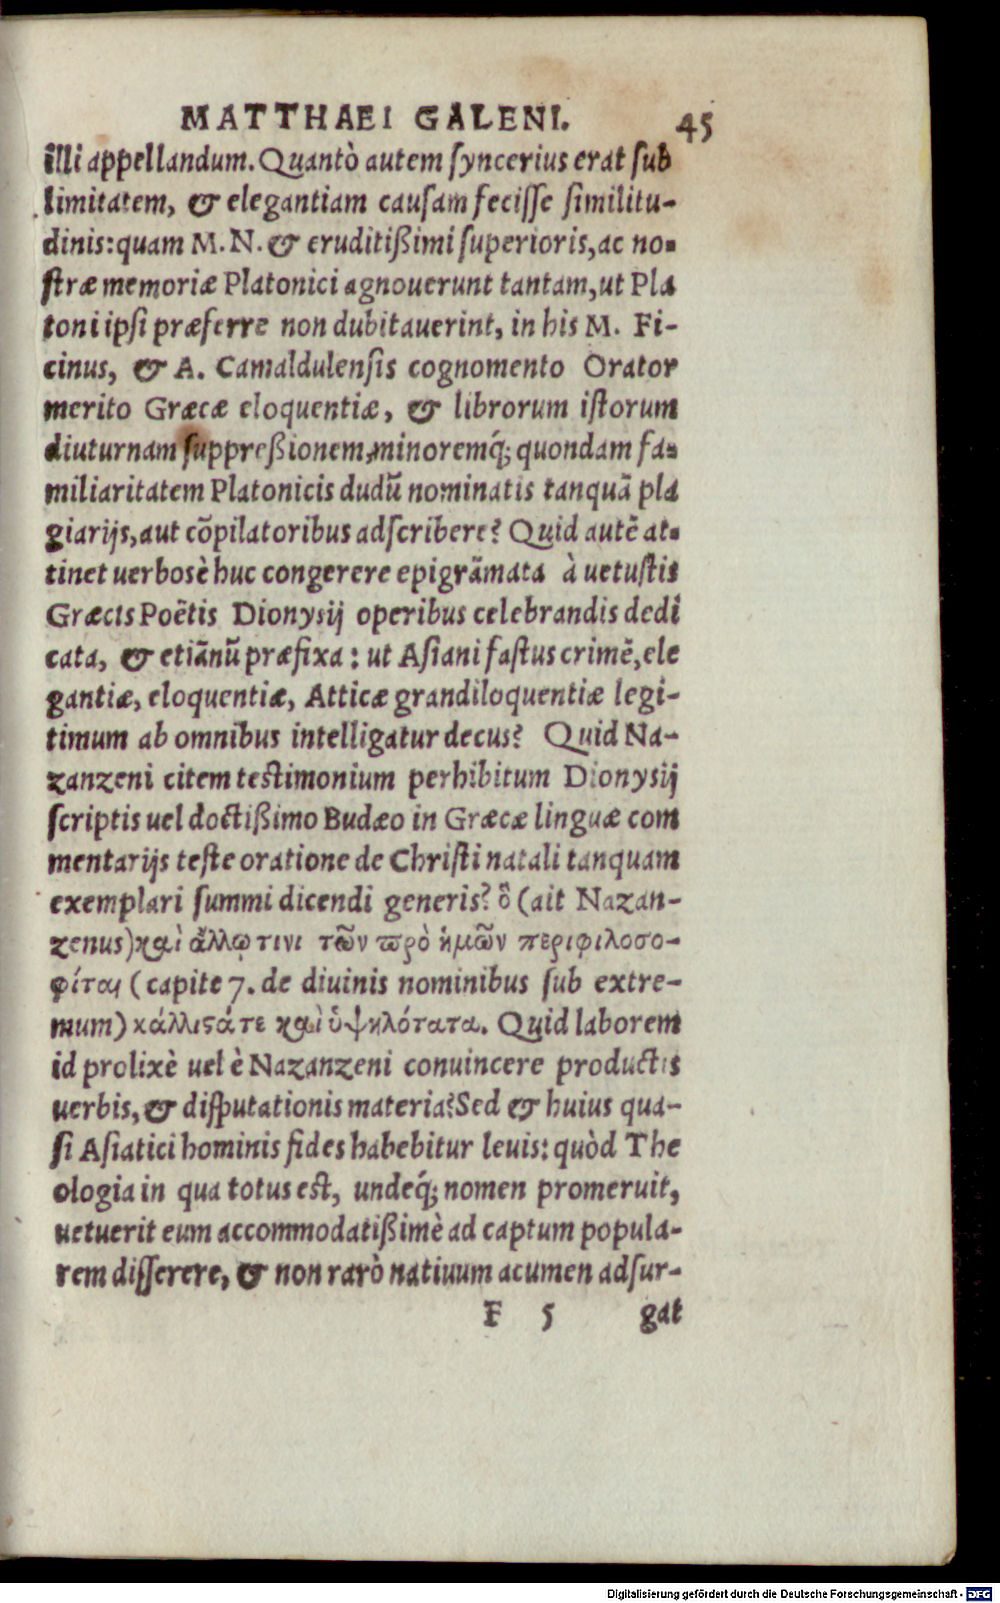 MATTHAEI GALENI. 45
illi appellandum. Quantò autem syncerius erat sub
limitatem, & elegantiam causam fecisse similitu-
dinis: quam M. N. & eruditißimi superioris, ac no-
stræ memoriæ Platonici agnouerunt tantam, ut Pla
toni ipsi præferre non dubitauerint, in his M. Fi-
cinus, & A. Camaldulensis cognomento Orator
merito Græcæ eloquentiæ, & librorum istorum
diuturnam suppreßionem, minoremq́; quondam fa-
miliaritatem Platonicis dudū nominatis tanquā pla
giarijs, aut cōpilatoribus adscribere? Quid autē at-
tinet uerbosè huc congerere epigrāmata à uetustis
Græcis Poëtis Dionysij operibus celebrandis dedi
cata, & etiānū præfixa: ut Asiani fastus crimē, ele
gantiæ, eloquentiæ, Atticæ grandiloquentiæ legi-
timum ab omnibus intelligatur decus? Quid Na-
zanzeni citem testimonium perhibitum Dionysij
scriptis uel doctißimo Budæo in Græcæ linguæ com
mentarijs teste oratione de Christi natali tanquam
exemplari summi dicendi generis? ὃ (ait Nazan-
zenus) καὶ ἄλλῳ τινι τῶν πρὸ ἡμῶν περιφιλοσο-
φίται (capite 7. de diuinis nominibus sub extre-
mum) κάλλιστά τε καὶ ὑψηλότατα. Quid laborem
id prolixè uel è Nazanzeni conuincere productis
uerbis, & disputationis materia? Sed & huius qua-
si Asiatici hominis fides habebitur leuis: quòd The
ologia in qua totus est, undeq́; nomen promeruit,
uetuerit eum accommodatißimè ad captum popula-
rem disserere, & non rarò natiuum acumen adsur-
F 5 gat
Digitalisierung gefördert durch die Deutsche Forschungsgemeinschaft - DFG